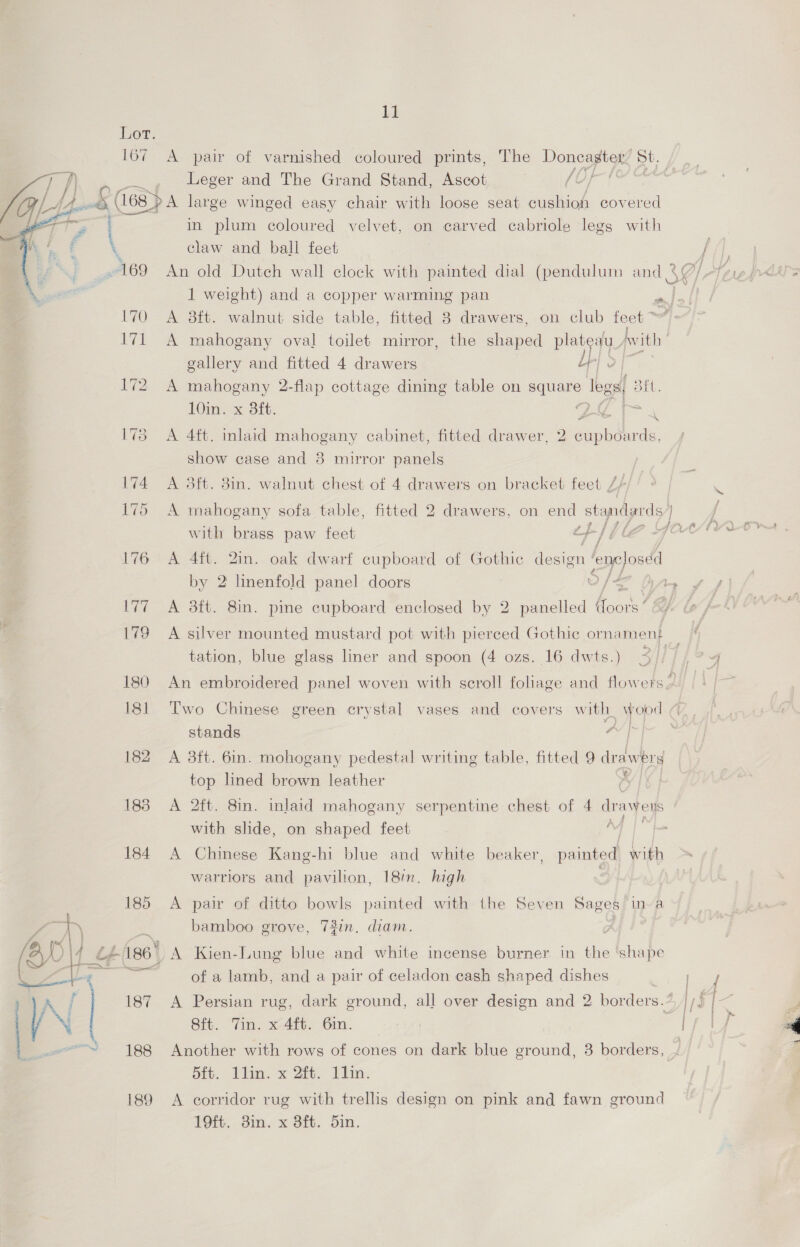 11
Lot.
167 A pair of varnished coloured prints, The Doncaster St.
Leger and The Grand Stand, Ascot
168 A large winged easy chair with loose seat cushion covered
in plum coloured velvet, on carved cabriole legs with
claw and ball feet
169 An old Dutch wall clock with painted dial (pendulum and
1 weight) and a copper warming pan
170 A 3ft. walnut side table, fitted 3 drawers, on club feet
171 A mahogany oval toilet mirror, the shaped plateau with
gallery and fitted 4 drawers
172 A mahogany 2-flap cottage dining table on square legs, 3ft.
10in. x 3ft.
173 A 4ft. inlaid mahogany cabinet, fitted drawer, 2 cupboards,
show case and 3 mirror panels
174 A 3ft. 3in. walnut chest of 4 drawers on bracket feet
175 A mahogany sofa table, fitted 2 drawers, on end standards
with brass paw feet
176 A 4ft. 2in. oak dwarf cupboard of Gothic design enclosed
by 2 linenfold panel doors
177 A 3ft. 8in. pine cupboard enclosed by 2 panelled doors
179 A silver mounted mustard pot with pierced Gothic ornamen
tation, blue glass liner and spoon (4 ozs. 16 dwts.)
180 An embroidered panel woven with scroll foliage and flowers
181 Two Chinese green crystal vases and covers with wood
stands
182 A 3ft. 6in. mohogany pedestal writing table, fitted 9 drawers
top lined brown leather
183 A 2ft. 8in. inlaid mahogany serpentine chest of 4 drawers
with slide, on shaped feet
184 A Chinese Kang-hi blue and white beaker, painted with
warriors and pavilion, 18in. high
185 A pair of ditto bowls painted with the Seven Sages in a
bamboo grove, 7¾in. diam.
186 A Kien-Lung blue and white incense burner in the shape
of a lamb, and a pair of celadon cash shaped dishes
187 A Persian rug, dark ground, all over design and 2 borders.
8ft. 7in. x 4ft. 6in.
188 Another with rows of cones on dark blue ground, 3 borders,
5ft. 11in. x 2ft. 11in.
189 A corridor rug with trellis design on pink and fawn ground
19ft. 3in. x 3ft. 5in.